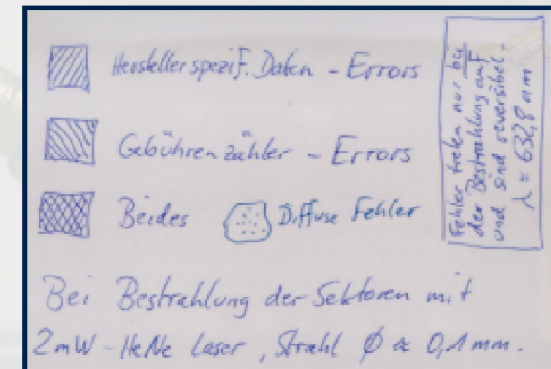 Herstellerspezif. Daten - Errors
Gebührenzähler - Errors
Beides
Diffuse Fehler
Fehler treten nur bei
der Bestrahlung auf
und sind reversibel.
λ = 632,8 nm
Bei Bestrahlung der Sektoren mit
2mW-HeNe Laser, Strahl Ø ≈ 0,1mm.